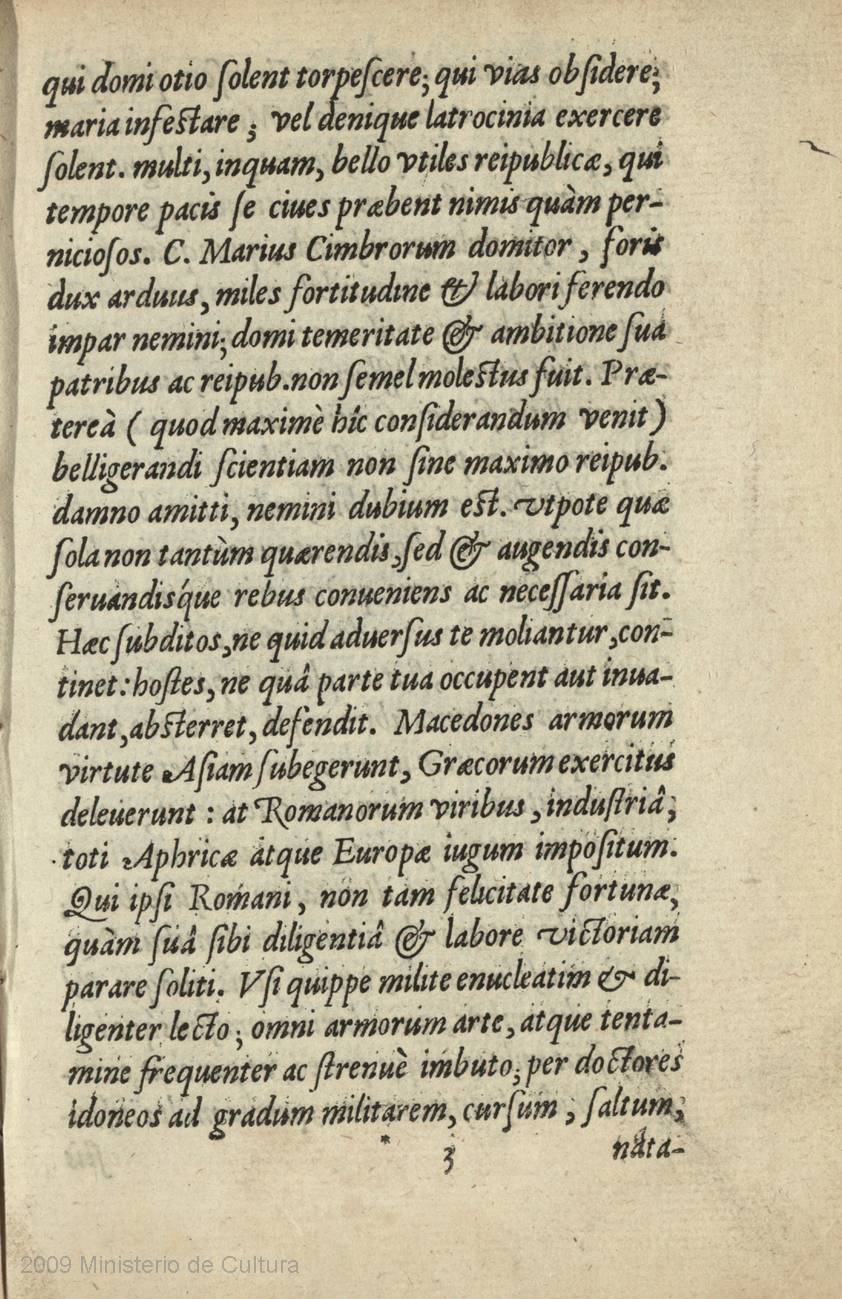 qui domi otio ſolent torpeſcere; qui vias obſidere;
maria infeſtare; vel denique latrocinia exercere
ſolent. multi, inquam, bello vtiles reipublicæ, qui
tempore pacis ſe ciues præbent nimis quàm per-
nicioſos. C. Marius Cimbrorum domitor, foris
dux arduus, miles fortitudine & labori ferendo
impar nemini; domi temeritate & ambitione ſua
patribus ac reipub. non ſemel moleſtus fuit. Præ-
tereà (quod maximè hîc conſiderandum venit)
belligerandi ſcientiam non ſine maximo reipub.
damno amitti, nemini dubium eſt. vtpote quæ
ſola non tantùm quærendis, ſed & augendis con-
ſeruandisque rebus conueniens ac neceſſaria ſit.
Hæc ſubditos, ne quid aduerſus te moliantur, con-
tinet: hoſtes, ne quâ parte tua occupent aut inua-
dant, abſterret, defendit. Macedones armorum
virtute Aſiam ſubegerunt, Græcorum exercitus
deleuerunt: at Romanorum viribus, induſtriâ,
toti Aphricæ atque Europæ iugum impoſitum.
Qui ipſi Romani, non tam felicitate fortunæ,
quàm ſuâ ſibi diligentiâ & labore victoriam
parare ſoliti. Vſi quippe milite enucleatim & di-
ligenter lecto; omni armorum arte, atque tenta-
mine frequenter ac ſtrenuè imbuto; per doctores
idoneos ad gradum militarem, curſum, ſaltum,
* 3 nata-
2009 Ministerio de Cultura